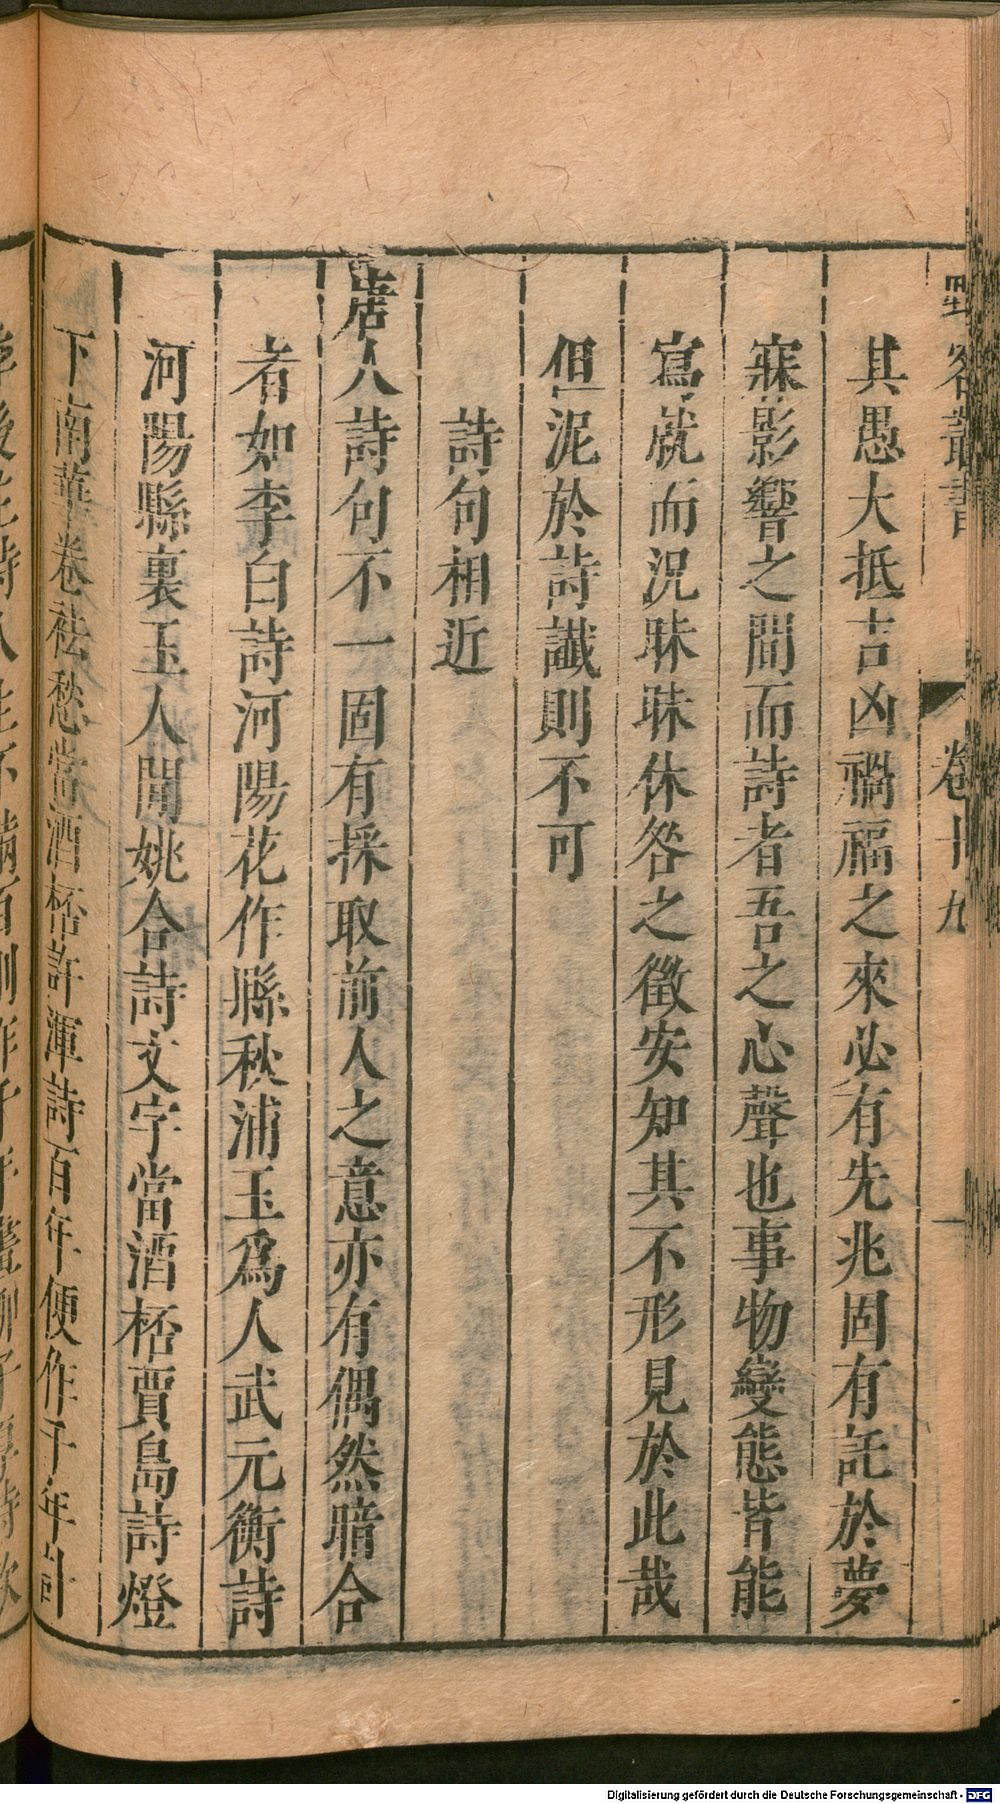 野客叢書
卷十九
其愚大抵吉凶禍福之來必有先兆固有託於夢
寐影響之間而詩者吾之心聲也事物變態皆能
寫就而況昧昧休咎之徵安知其不形見於此哉
但泥於詩讖則不可
詩句相近
唐人詩句不一固有採取前人之意亦有偶然暗合
者如李白詩河陽花作縣秋浦玉為人武元衡詩
河陽縣裏玉人閒姚合詩文字當酒桮賈島詩燈
下南華卷袪愁當酒桮許渾詩百年便作千年計
Digitalisierung gefördert durch die Deutsche Forschungsgemeinschaft - DFG